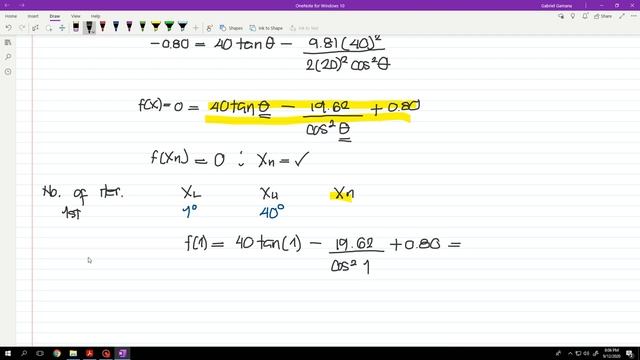 OneNote for Windows 10
Gabriel Gamana
Home Insert Draw View Help
Ink to Shape Ink to Text Math
-0.80 = 40 tan θ - 9.81(40)² / 2(20)² cos²θ
f(x)=0 = 40tan θ - 19.62 / cos² θ + 0.80
f(Xn) = 0 ; Xn = ✓
No. of iter. XL Xu Xn
1st 1° 40°
f(1) = 40 tan(1) - 19.62 / cos² 1 + 0.80 =
8:06 PM
9/12/2020